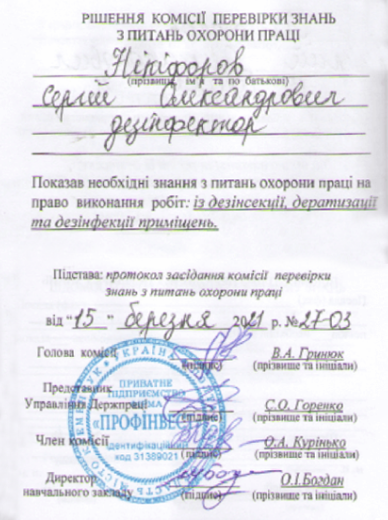 РІШЕННЯ КОМІСІЇ ПЕРЕВІРКИ ЗНАНЬ
З ПИТАНЬ ОХОРОНИ ПРАЦІ
Нікіфоров
(прізвище, ім'я та по батькові)
Сергій Олександрович
дезінфектор
Показав необхідні знання з питань охорони праці на
право виконання робіт: із дезінсекції, дератизації
та дезінфекції приміщень.
Підстава: протокол засідання комісії перевірки
знань з питань охорони праці
від "15" березня 2021 р. №27-03
Голова комісії В.А. Гринюк
(підпис) (прізвище та ініціали)
Представник
Управління Держпраці С.О. Горенко
(підпис) (прізвище та ініціали)
Член комісії О.А. Курінько
(підпис) (прізвище та ініціали)
Директор О.І.Богдан
навчального закладу (підпис) (прізвище та ініціали)
УКРАЇНА
ПРИВАТНЕ
ПІДПРИЄМСТВО
"ПРОФІНВЕСТ"
Ідентифікаційний
код 31389021